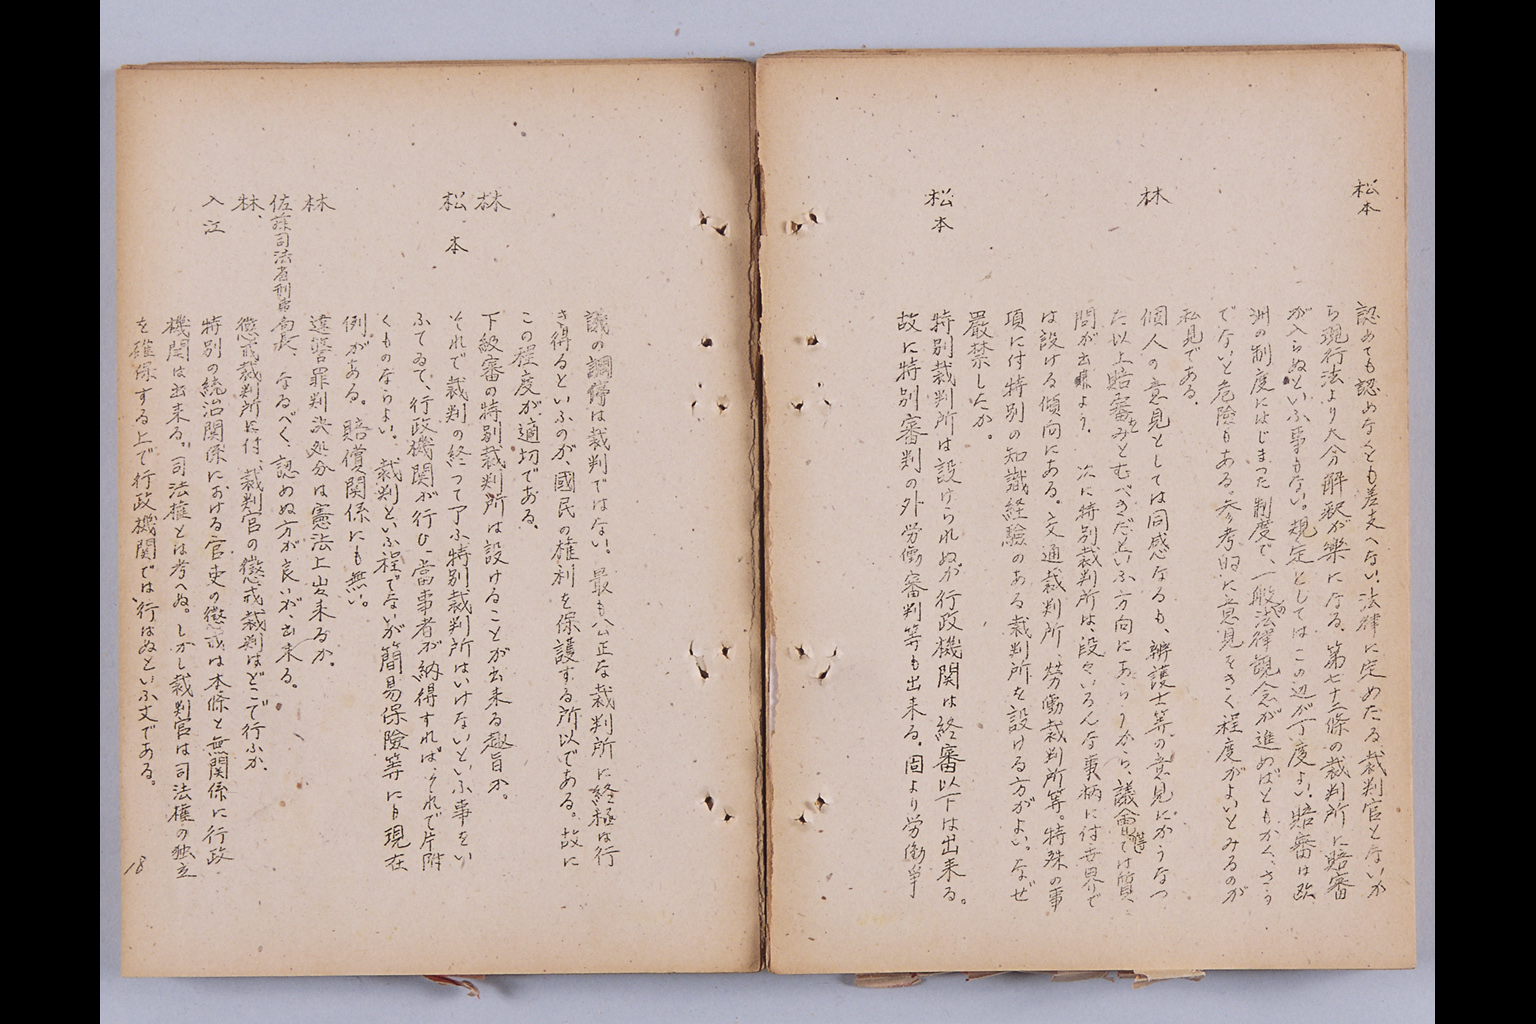 松本 認めても認めなくとも差支へない、法律に定めたる裁判官とないか
ら現行法より大分解釈が楽になる。第七十二條の裁判所に賠審
が入らぬといふ事もない。規定としてはこの辺が丁度よい。賠審は欧
洲の制度にはじまつた制度で、一般の法律観念が進めばともかく、さう
でないと危険もある。参考的に意見をきく程度がよいとみるのが
私見である。
林 個人の意見としては同感なるも、辨護士等の意見にかうなつ
た以上賠審をみとむべきだといふ方向にあらうから、議會では質
問が出よう。次に特別裁判所は段々いろんな事柄に付世界で
は設ける傾向にある。交通裁判所、労働裁判所等。特殊の事
項に付特別の知識経験のある裁判所を設ける方がよい。なぜ
嚴禁したか。
松本 特別裁判所は設けられぬが行政機関は終審以下は出来る。
故に特別審判の外労働審判等も出来る。固より労働争
議の調停は裁判ではない。最も公正な裁判所に終極は行
き得るといふのが、國民の権利を保護する所以である。故に
この程度が適切である。
林 下級審の特別裁判所は設けることが出来る趣旨か。
松本 それで裁判の終つて了ふ特別裁判所はいけないといふ事をい
ふてゐて、行政機関が行ひ、當事者が納得すれば、それで片附
くものならよい。裁判といふ程でないが簡易保険等にも現在
例がある。賠償関係にも無い。
林 違警罪判決処分は憲法上出来るか。
佐藤司法省刑事局長、なるべく、認めぬ方が良いが、出来る。
林、懲戒裁判所に付、裁判官の懲戒裁判はどこで行ふか、
入江 特別の統治関係における官吏の懲戒は本條と無関係に行政
機関は出来る。司法権とは考へぬ。しかし裁判官は司法権の独立
を確保する上で行政機関では行はぬといふ丈である。
18